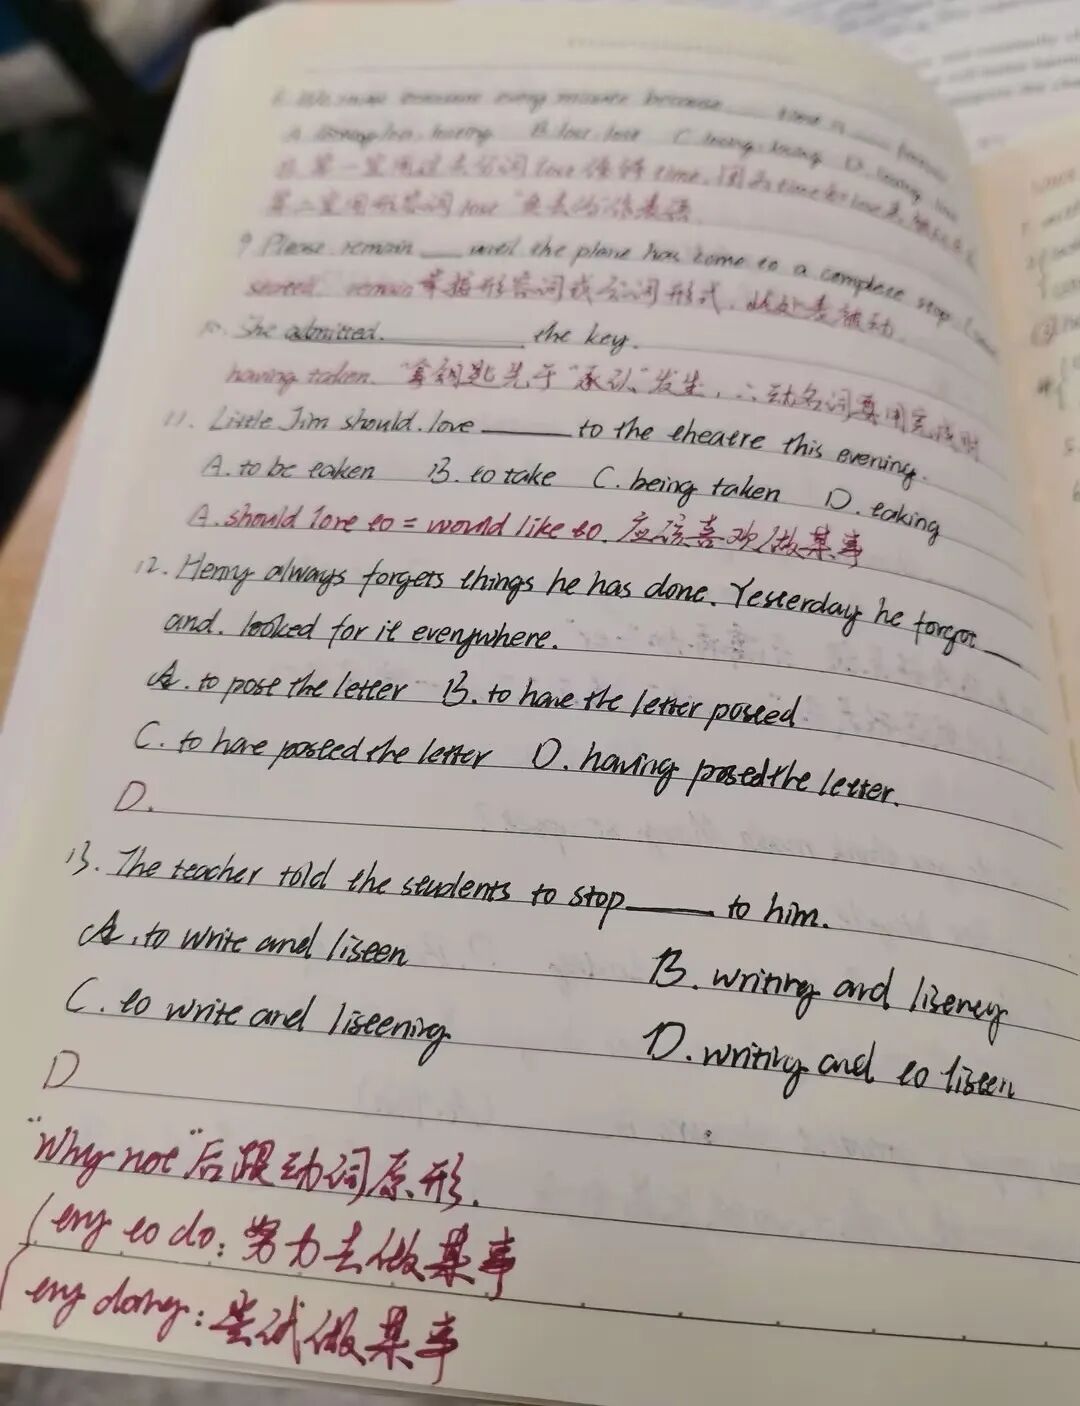 every minute because ___ time is ___ forever
A. having lost, having B. lost, lost C. losing, losing D. losing, lost
B. 第一空用过去分词 lost 修饰 time, 因为 time
第二空用形容词 lost "失去的" 作表语
9 Please remain ___ until the plane has come to a complete stop.
seated. remain 单接形容词或分词形式, 此处表被动.
10. She admitted. ___ the key.
having taken. "拿钥匙先于"承认"发生, ∴动名词要用完成时
11. Little Jim should. love ___ to the theatre this evening.
A. to be taken B. to take C. being taken D. taking
A. should love to = would like to. 应该喜欢做某事
12. Henry always forgets things he has done. Yesterday he forgot ___
and. looked for it everywhere.
A. to post the letter B. to have the letter posted.
C. to have posted the letter D. having posted the letter.
D.
13. The teacher told the students to stop ___ to him.
A. to write and listen B. writing and liseneg
C. to write and listening D. writing and to listen
D
"Why not" 后跟动词原形.
try to do: 努力去做某事
try doing: 尝试做某事